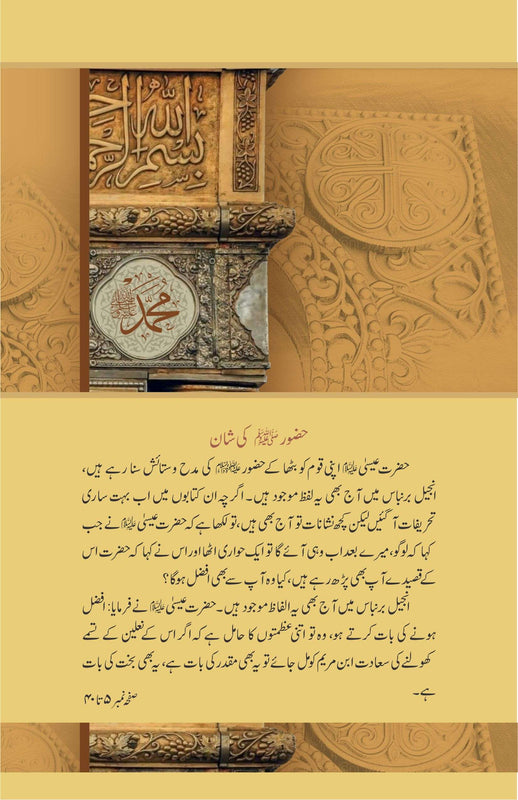 بسم الله الرحم
محمد ﷺ
حضور ﷺ کی شان
حضرت عیسیٰ علیہ السلام اپنی قوم کو بٹھا کے حضور ﷺ کی مدح و ستائش سنا رہے ہیں،
انجیل برنباس میں آج بھی یہ لفظ موجود ہیں۔ اگرچہ ان کتابوں میں اب بہت ساری
تحریفات آگئیں لیکن کچھ نشانات تو آج بھی ہیں، تو لکھا ہے کہ حضرت عیسیٰ علیہ السلام نے جب
کہا کہ لوگو، میرے بعد اب وہی آئے گا تو ایک حواری اٹھا اور اس نے کہا کہ حضرت اس
کے قصیدے آپ بھی پڑھ رہے ہیں، کیا وہ آپ سے بھی افضل ہوگا؟
انجیل برنباس میں آج بھی یہ الفاظ موجود ہیں۔ حضرت عیسیٰ علیہ السلام نے فرمایا: افضل
ہونے کی بات کرتے ہو، وہ تو اتنی عظمتوں کا حامل ہے کہ اگر اس کے نعلین کے تسمے
کھولنے کی سعادت ابن مریم کو مل جائے تو یہ بھی مقدر کی بات ہے، یہ بھی بخت کی بات
ہے۔
صفحہ نمبر ۵ تا ۴۰